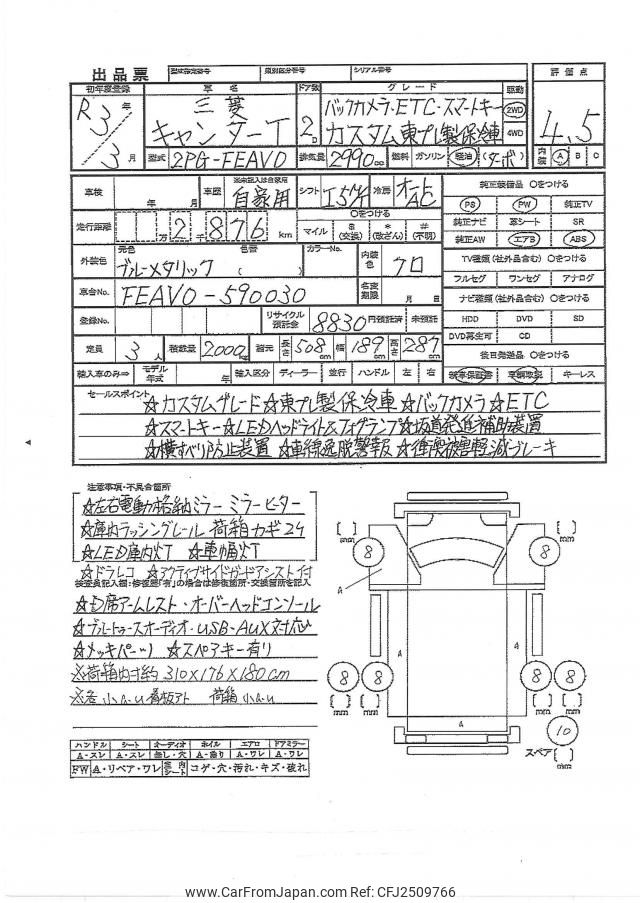 出品票 型式指定番号 類別区分番号 シリアル番号
初年度登録 車名 ドア数 グレード 駆動 評価点
R3年 3月 三菱 キャンターT 2D バックカメラ・ETC・スマートキー 2WD
カスタム東プレ製保冷車 4WD 4.5
型式 2PG-FEAV0 排気量 2990cc 燃料 ガソリン 軽油 (ターボ) 内装 A B C
車検 年 月 車歴 ※未記入は自家用 自家用 シフト I5 冷房 オート AC 純正装備品 〇をつける
PS PW 純正TV
走行距離 万 2千 876 km 〇をつける マイル $(交換) *(改ざん) #(不明) 純正ナビ 革シート SR
純正AW エアB ABS
外装色 元色 ブルーメタリック 色替 ( カラーNo. 内装色 クロ TV種類(社外品含む) 〇をつける
フルセグ ワンセグ アナログ
車台No. FEAV0-590030 名変期限 月 日 ナビ種類(社外品含む) 〇をつける
登録No. リサイクル預託金 8830円預託済 未預託 HDD DVD SD
DVD再生可 CD
定員 3人 積載量 2000kg 諸元 長さ 508cm 幅 189cm 高さ 287cm 後日発送品 〇をつける
輸入車のみ⇒ モデル年式 年 輸入区分 ディーラー 並行 ハンドル 左 右 新車保証書 車輌取説 キーレス
セールスポイント
☆カスタムグレード☆東プレ製保冷車☆バックカメラ☆ETC
☆スマートキー☆LEDヘッドライト&フォグランプ☆坂道発進補助装置
☆横すべり防止装置☆車線逸脱警報☆衝突被害軽減ブレーキ
注意事項・不具合箇所
☆左右電動格納ミラー ミラーヒーター
☆庫内ラッシングレール 荷箱カギ2ケ
☆LED庫内灯 ☆車幅灯
☆ドラレコ ☆アクティブサイドガードアシスト付
検査員記入欄・修復歴「有」の場合は修復箇所・交換箇所を記入
☆D席アームレスト・オーバーヘッドコンソール
☆ブルートゥースオーディオ・USB・AUX対応
☆メッキパーツ ☆スペアキー有り
※荷箱内寸約 310×176×180cm
小A.U 荷箱 小A.U
ハンドル シート オーディオ ホイル エアロ ドアミラー
A・スレ A・スレ 無し・穴 A・曲り A・ワレ A・ワレ
FW A・リペア・ワレ 室内シート コゲ・穴・汚れ・キズ・破れ
[ ] mm 8 8 [ ] mm
A
A A
8 8 8 8
[ ] mm [ ] mm [ ] mm [ ] mm
A
10
スペア [ ] mm
www.CarFromJapan.com Ref: CFJ2509766